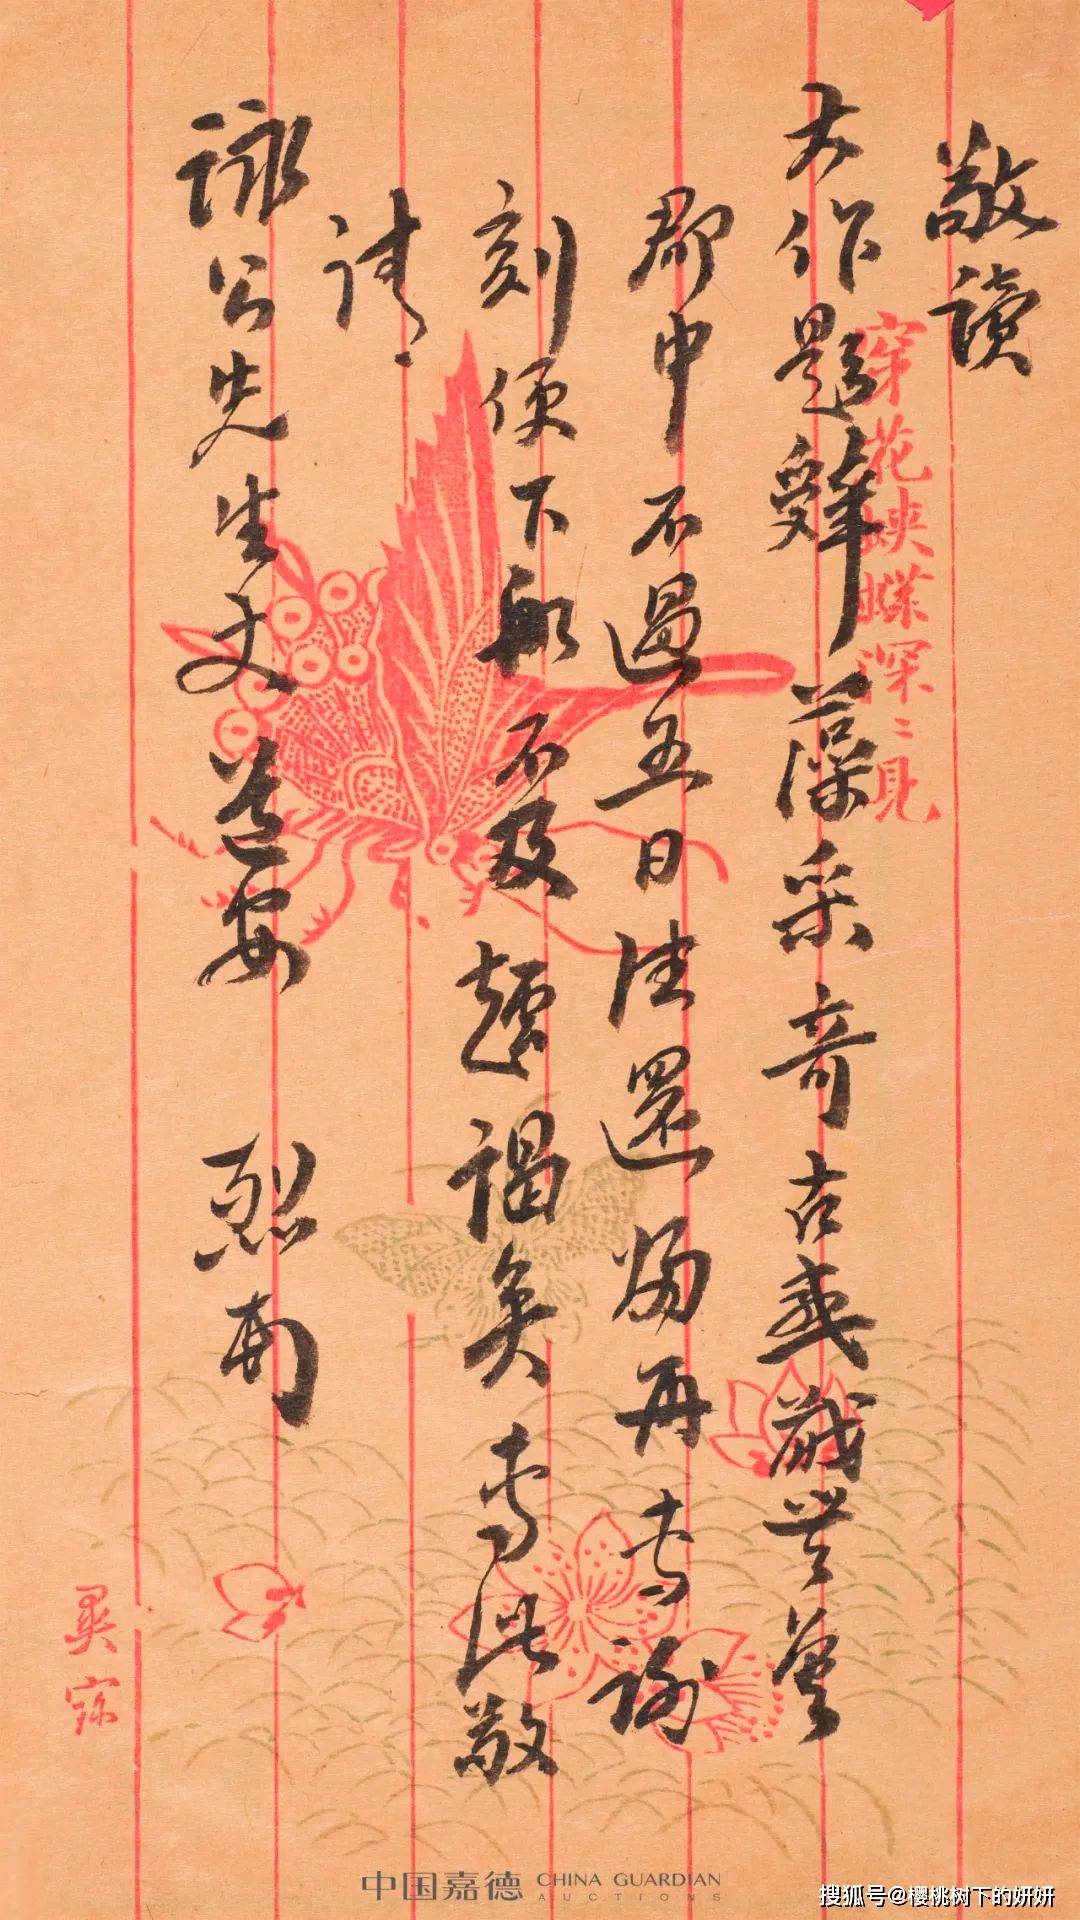 敬讀
大作題辭藻采奇古感戢無量
郡中不過五日往還歸再走謝
刻便下船不及趨謁矣專此敬
請
詠公先生文道安 烈南
穿花蛺蝶深〻見
異寐
中国嘉德 CHINA GUARDIAN
AUCTIONS
搜狐号@樱桃树下的妍妍